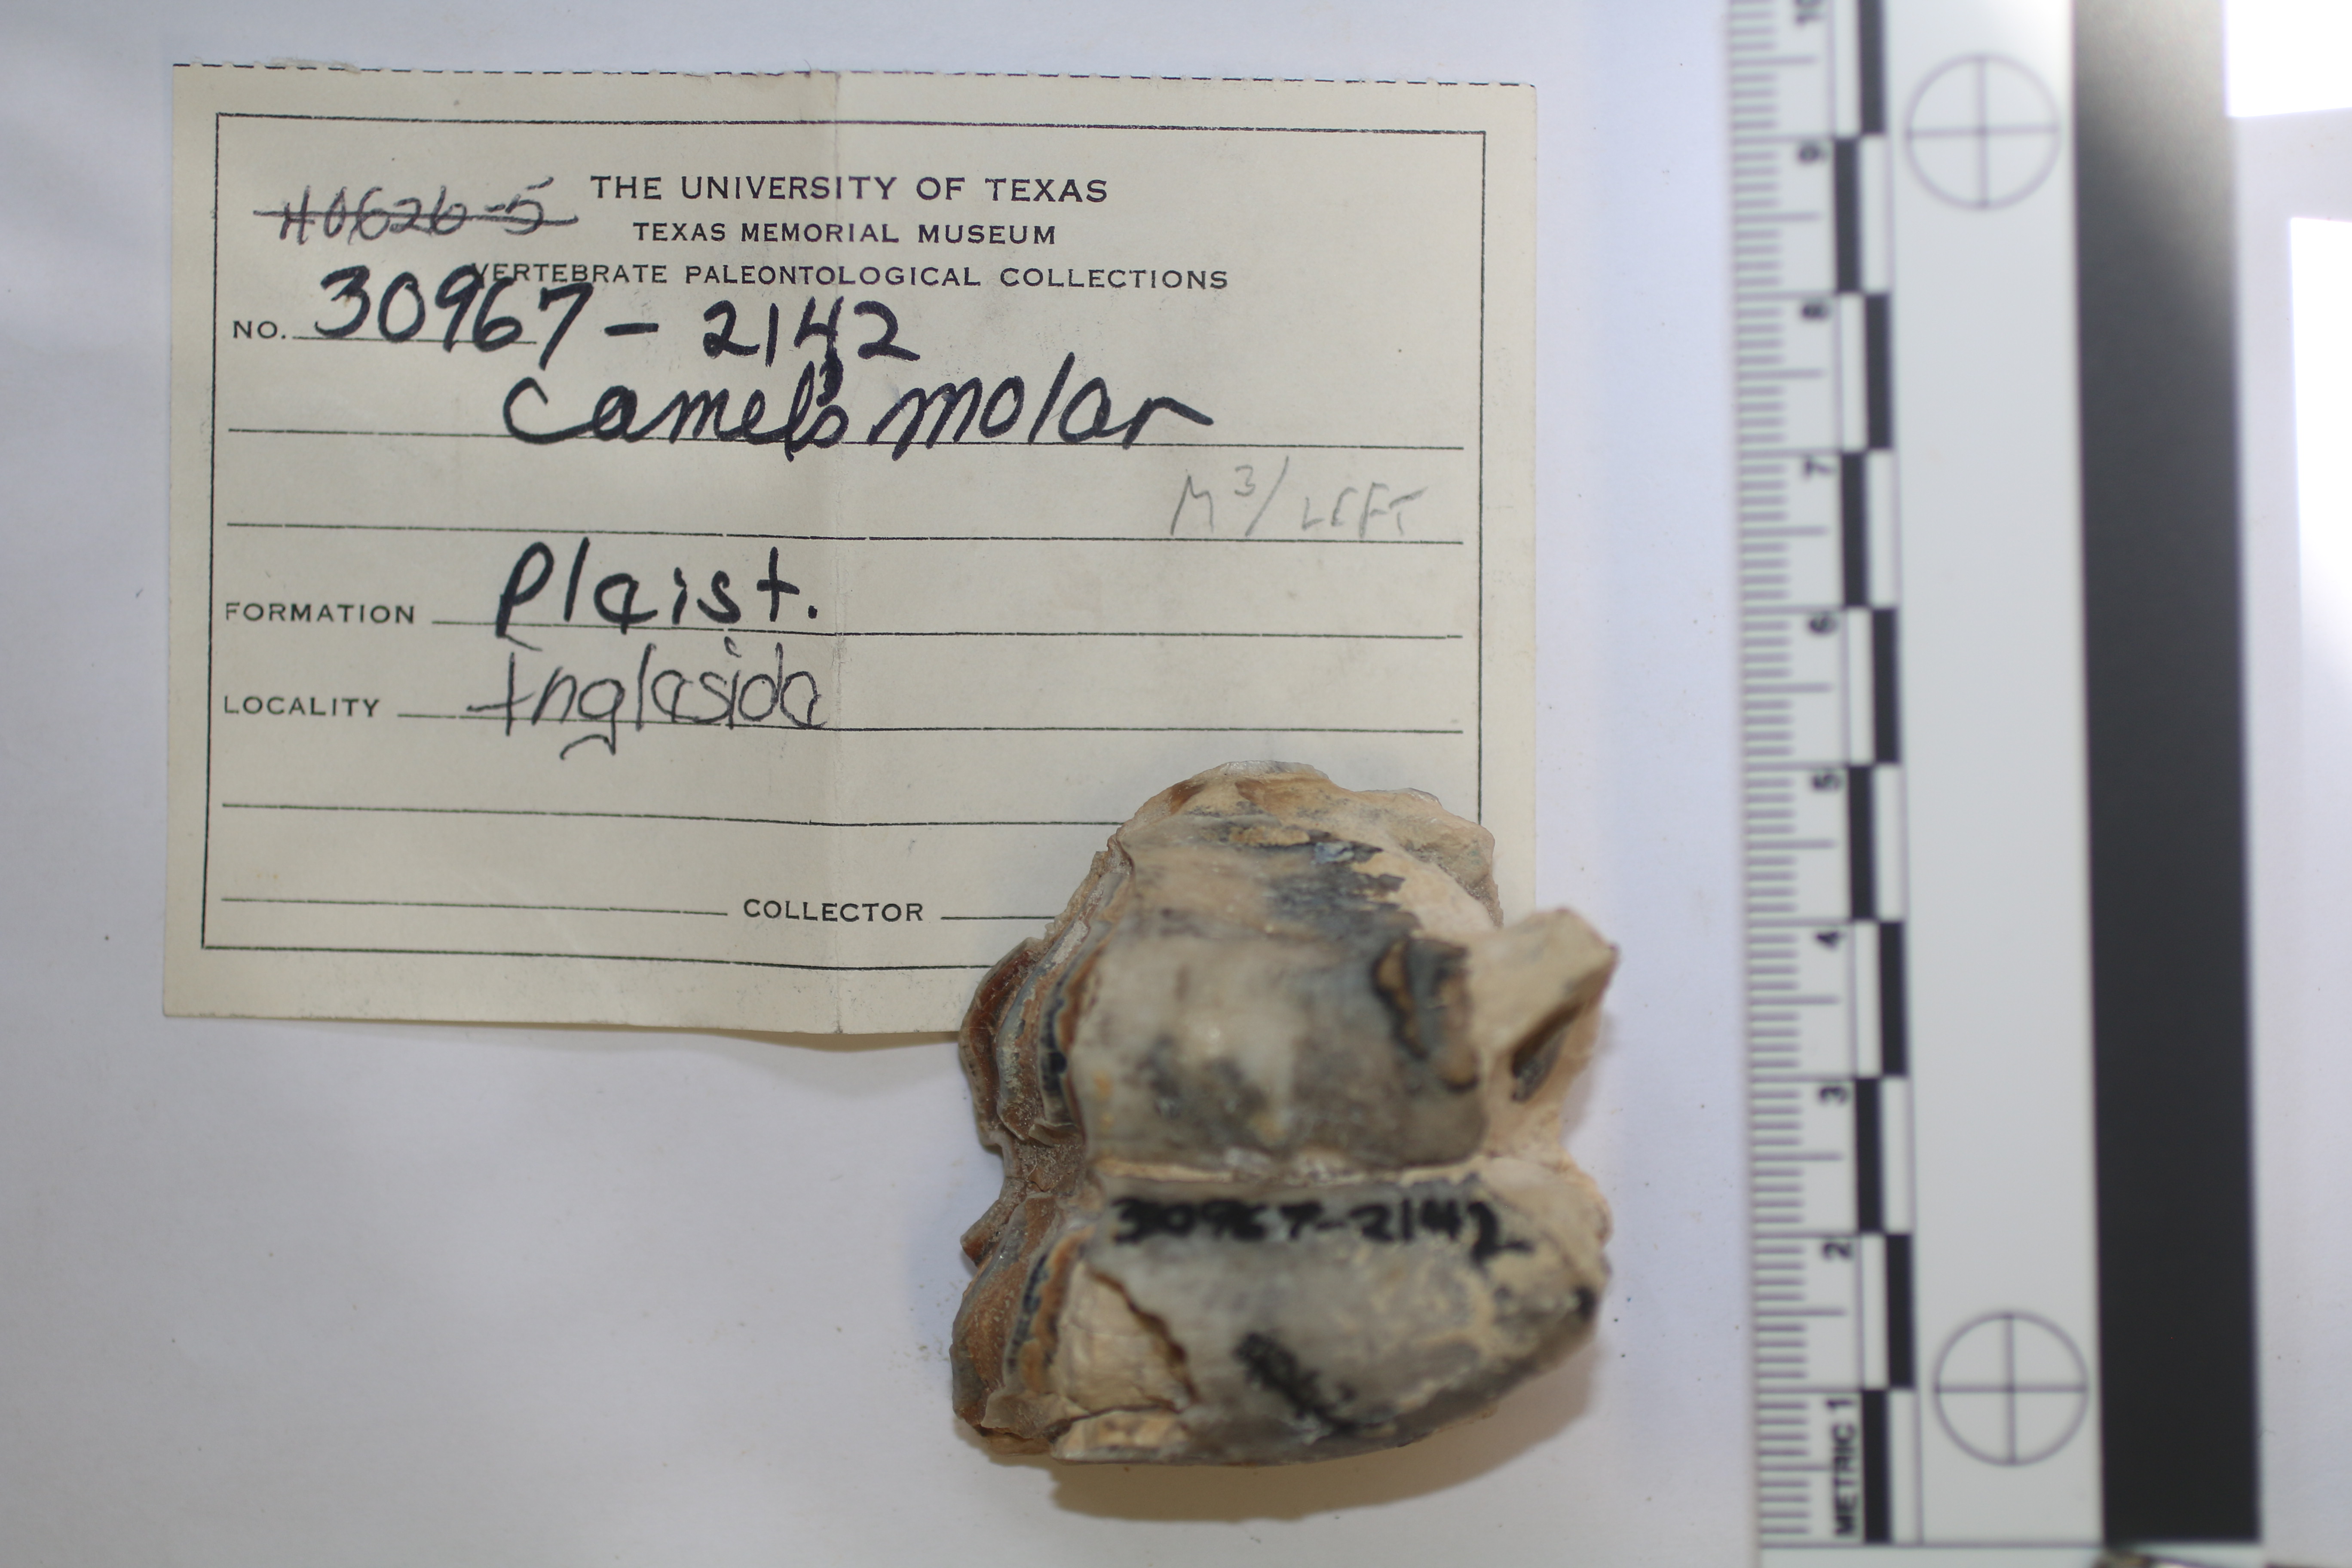 40626-5
THE UNIVERSITY OF TEXAS
TEXAS MEMORIAL MUSEUM
VERTEBRATE PALEONTOLOGICAL COLLECTIONS
NO. 30967-2142
Camel's molar
M3/ LEFT
FORMATION Pleist.
LOCALITY Ingleside
COLLECTOR
30967-2142
10
9
8
7
6
5
4
3
2
METRIC 1